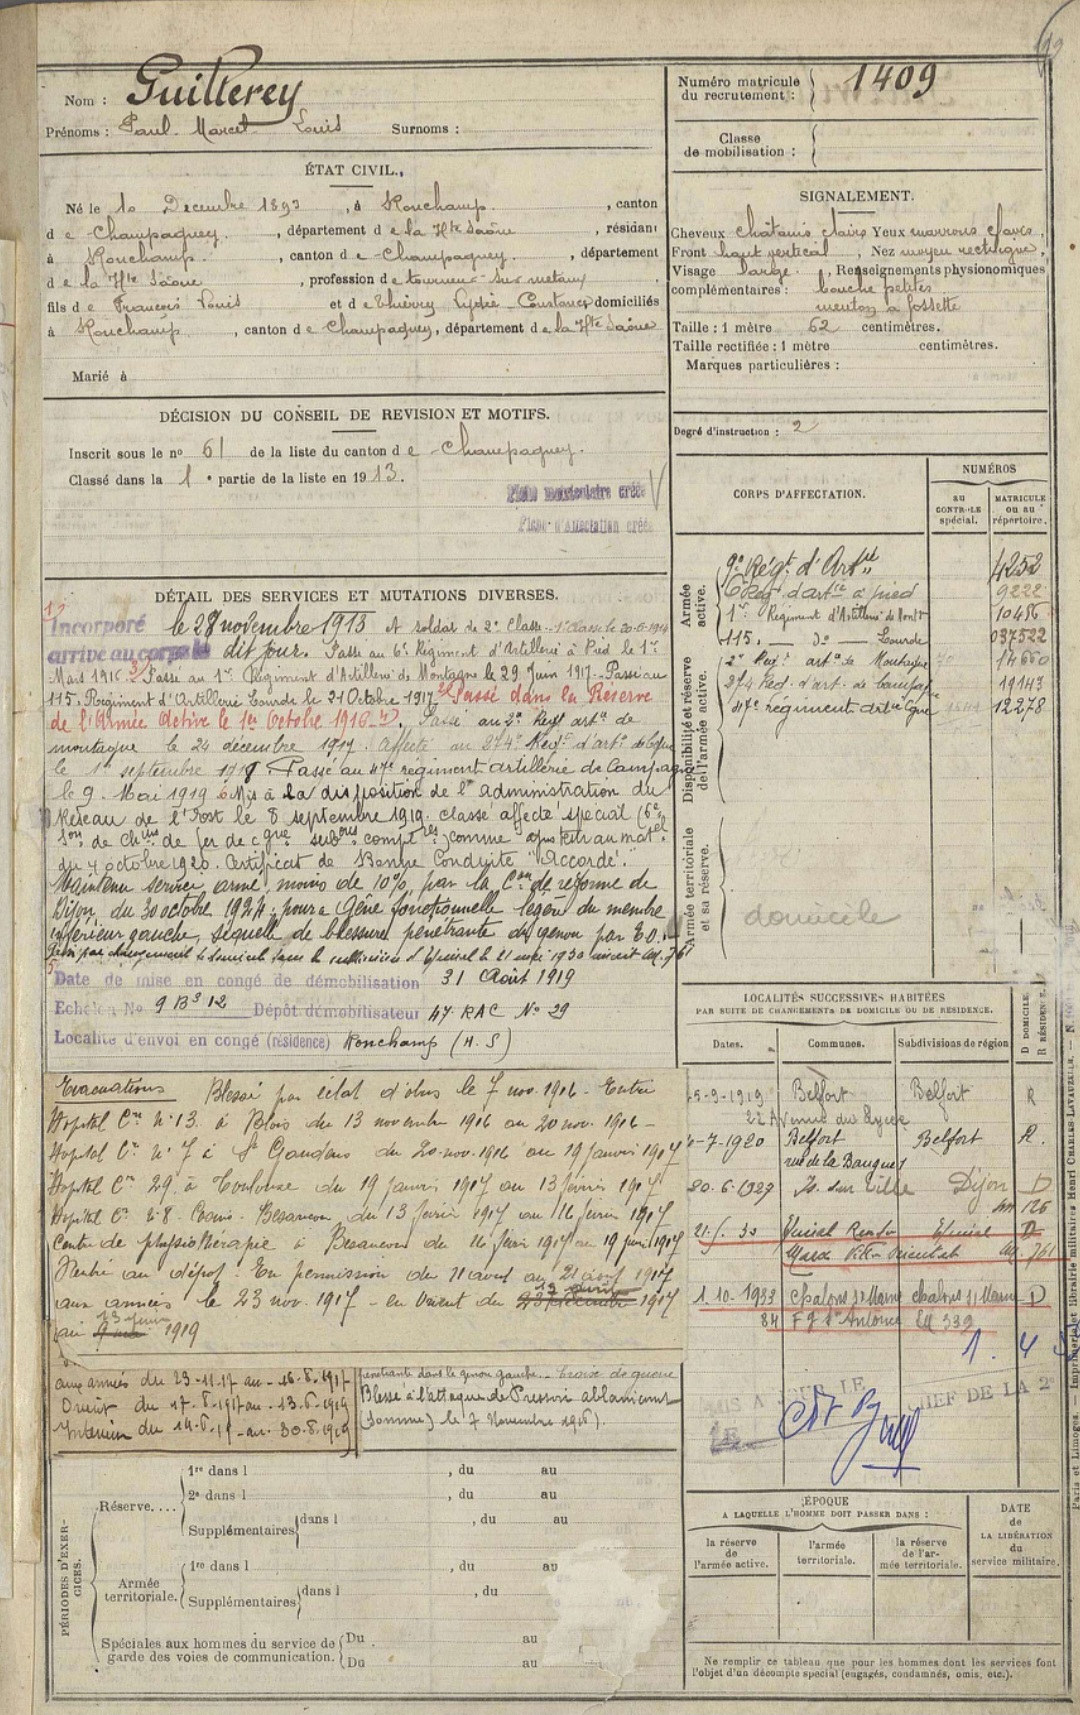 Nom : Guillerey
Prénoms : Paul Marcel Louis Surnoms :
Numéro matricule du recrutement : 1409
Classe de mobilisation :
ÉTAT CIVIL.
Né le 10 Decembre 1893, à Ronchamp, canton
de Champagney, département de la Hte Saône, résidant
à Ronchamp, canton de Champagney, département
de la Hte Saône, profession de tourneur sur métaux
fils de François Louis et de Thièvry Lydie Constance domiciliés
à Ronchamp, canton de Champagney, département de la Hte Saône
Marié à
SIGNALEMENT.
Cheveux châtains clairs Yeux marrons clairs,
Front haut vertical, Nez moyen rectiligne,
Visage large, Renseignements physionomiques
complémentaires : bouche petites
menton à fossette
Taille : 1 mètre 62 centimètres.
Taille rectifiée : 1 mètre centimètres.
Marques particulières :
Degré d'instruction : 2
DÉCISION DU CONSEIL DE REVISION ET MOTIFS.
Inscrit sous le no 61 de la liste du canton de Champagney.
Classé dans la 1e partie de la liste en 1913.
Fiche matriculaire créée
Fiche d'Affectation créée
CORPS D'AFFECTATION.
NUMÉROS
au CONTROLE spécial.
MATRICULE ou au répertoire.
Armée active.
9e Régt d'Artie 4252
6e Rég. d'artie à pied 9222
1er Régiment d'Artillerie de Montne 10486
115e do Lourde 037522
Disponibilité et réserve de l'armée active.
2e Regt artie de Montagne 14660
274 Reg. d'art. de Campagne 19143
47e régiment artie Cgne 12278
Armée territoriale et sa réserve.
domicile
DÉTAIL DES SERVICES ET MUTATIONS DIVERSES.
Incorporé le 28 novembre 1913 Et soldat de 2e Classe. 1e Classe le 20-6-1914
arrivé au corps le dit jour. Passé au 6e Régiment d'Artillerie à Pied le 1er
Mars 1916. Passé au 1er Régiment d'Artillerie de Montagne le 29 Juin 1917. Passé au
115e Régiment d'Artillerie Lourde le 21 Octobre 1917. Passé dans la Réserve
de l'Armée Active le 1er Octobre 1916. Passé au 2e Regt artie de
montagne le 24 décembre 1917. Affecté au 274e Regt d'artie de Cagne
le 1er septembre 1918. Passé au 47e régiment artillerie de Campagne
le 9 Mai 1919. Mis à la disposition de l'administration du
Réseau de l'Est le 8 septembre 1919. classé affecté spécial (6e
Son de Chins de fer de cgne subons complres) comme
du 4 octobre 1920. Certificat de Bonne Conduite "Accordé".
Maintenu service armé, moins de 10%, par la Con de réforme de
Dijon, du 30 octobre 1924, pour : Gêne fonctionnelle légère du membre
inférieur gauche, séquelle de blessure pénétrante du genou par E.O.
par changement de domicile dans la subdivision d'Epinal le 21 mai 1930
Date de mise en congé de démobilisation 31 Août 1919
Echelon No 9 B3 12 Dépôt démobilisateur 47 RAC No 29
Localité d'envoi en congé (résidence) Ronchamp (H.S)
Evacuations Blessé par éclat d'obus le 7 nov. 1916. Entré
Hôpital Cre No 13 à Blois du 13 novembre 1916 au 20 nov. 1916 -
Hôpital Cre No 7 à St Gaudens du 20 nov. 1916 au 19 Janvier 1917
Hôpital Cre 29 à Toulouse du 19 janvier 1917 au 13 février 1917
Hôpital Cre No 8 Besançon du 13 février 1917 au 16 février 1917
Centre de physiothérapie à Besançon du 16 février 1917 au 19 juin 1917
Rentré au dépôt. En permission du 11 août au 21 août 1917
aux armées le 23 nov. 1917 - en Orient du 1917
au 13 juin 1919
aux armées du 23-11-17 au 16-8-1917
Orient du 17-8-1917 au 13-6-1919
Intérieur du 14-6-19 au 30-8-1919
pénétrante dans le genou gauche. Croix de guerre
Blessé à l'attaque de Pressoir ablaincourt
(Somme) le 7 Novembre 1916).
LOCALITÉS SUCCESSIVES HABITÉES
PAR SUITE DE CHANGEMENTS DE DOMICILE OU DE RÉSIDENCE.
Dates. Communes. Subdivisions de région
D DOMICILE. R RÉSIDENCE.
5-9-1919 Belfort Belfort R
22 Avenue du Lycée
-7-1920 Belfort Belfort R.
rue de la Banque 1
20.6.1929 Is sur Ville Dijon D
126
21.5.30 Epinal Epinal D
761
1.10.1933 Chalons s/Marne Chalons s/Marne D
84 Fg St Antoine 339
1. 4
MIS A JOUR LE
CHEF DE LA 2e
ÉPOQUE
A LAQUELLE L'HOMME DOIT PASSER DANS :
la réserve de l'armée active.
l'armée territoriale.
la réserve de l'armée territoriale.
DATE de LA LIBÉRATION du service militaire.
Ne remplir ce tableau que pour les hommes dont les services font
l'objet d'un décompte spécial (engagés, condamnés, omis, etc.).
PÉRIODES D'EXERCICES.
Réserve....
1re dans l , du au
2e dans l , du au
Supplémentaires dans l , du au
Armée territoriale.
1re dans l , du au
Supplémentaires dans l , du
Spéciales aux hommes du service de garde des voies de communication.
Du au
Du au
Paris et Limoges. — Imprimerie et librairie militaires Henri CHARLES-LAVAUZELLE. — N.